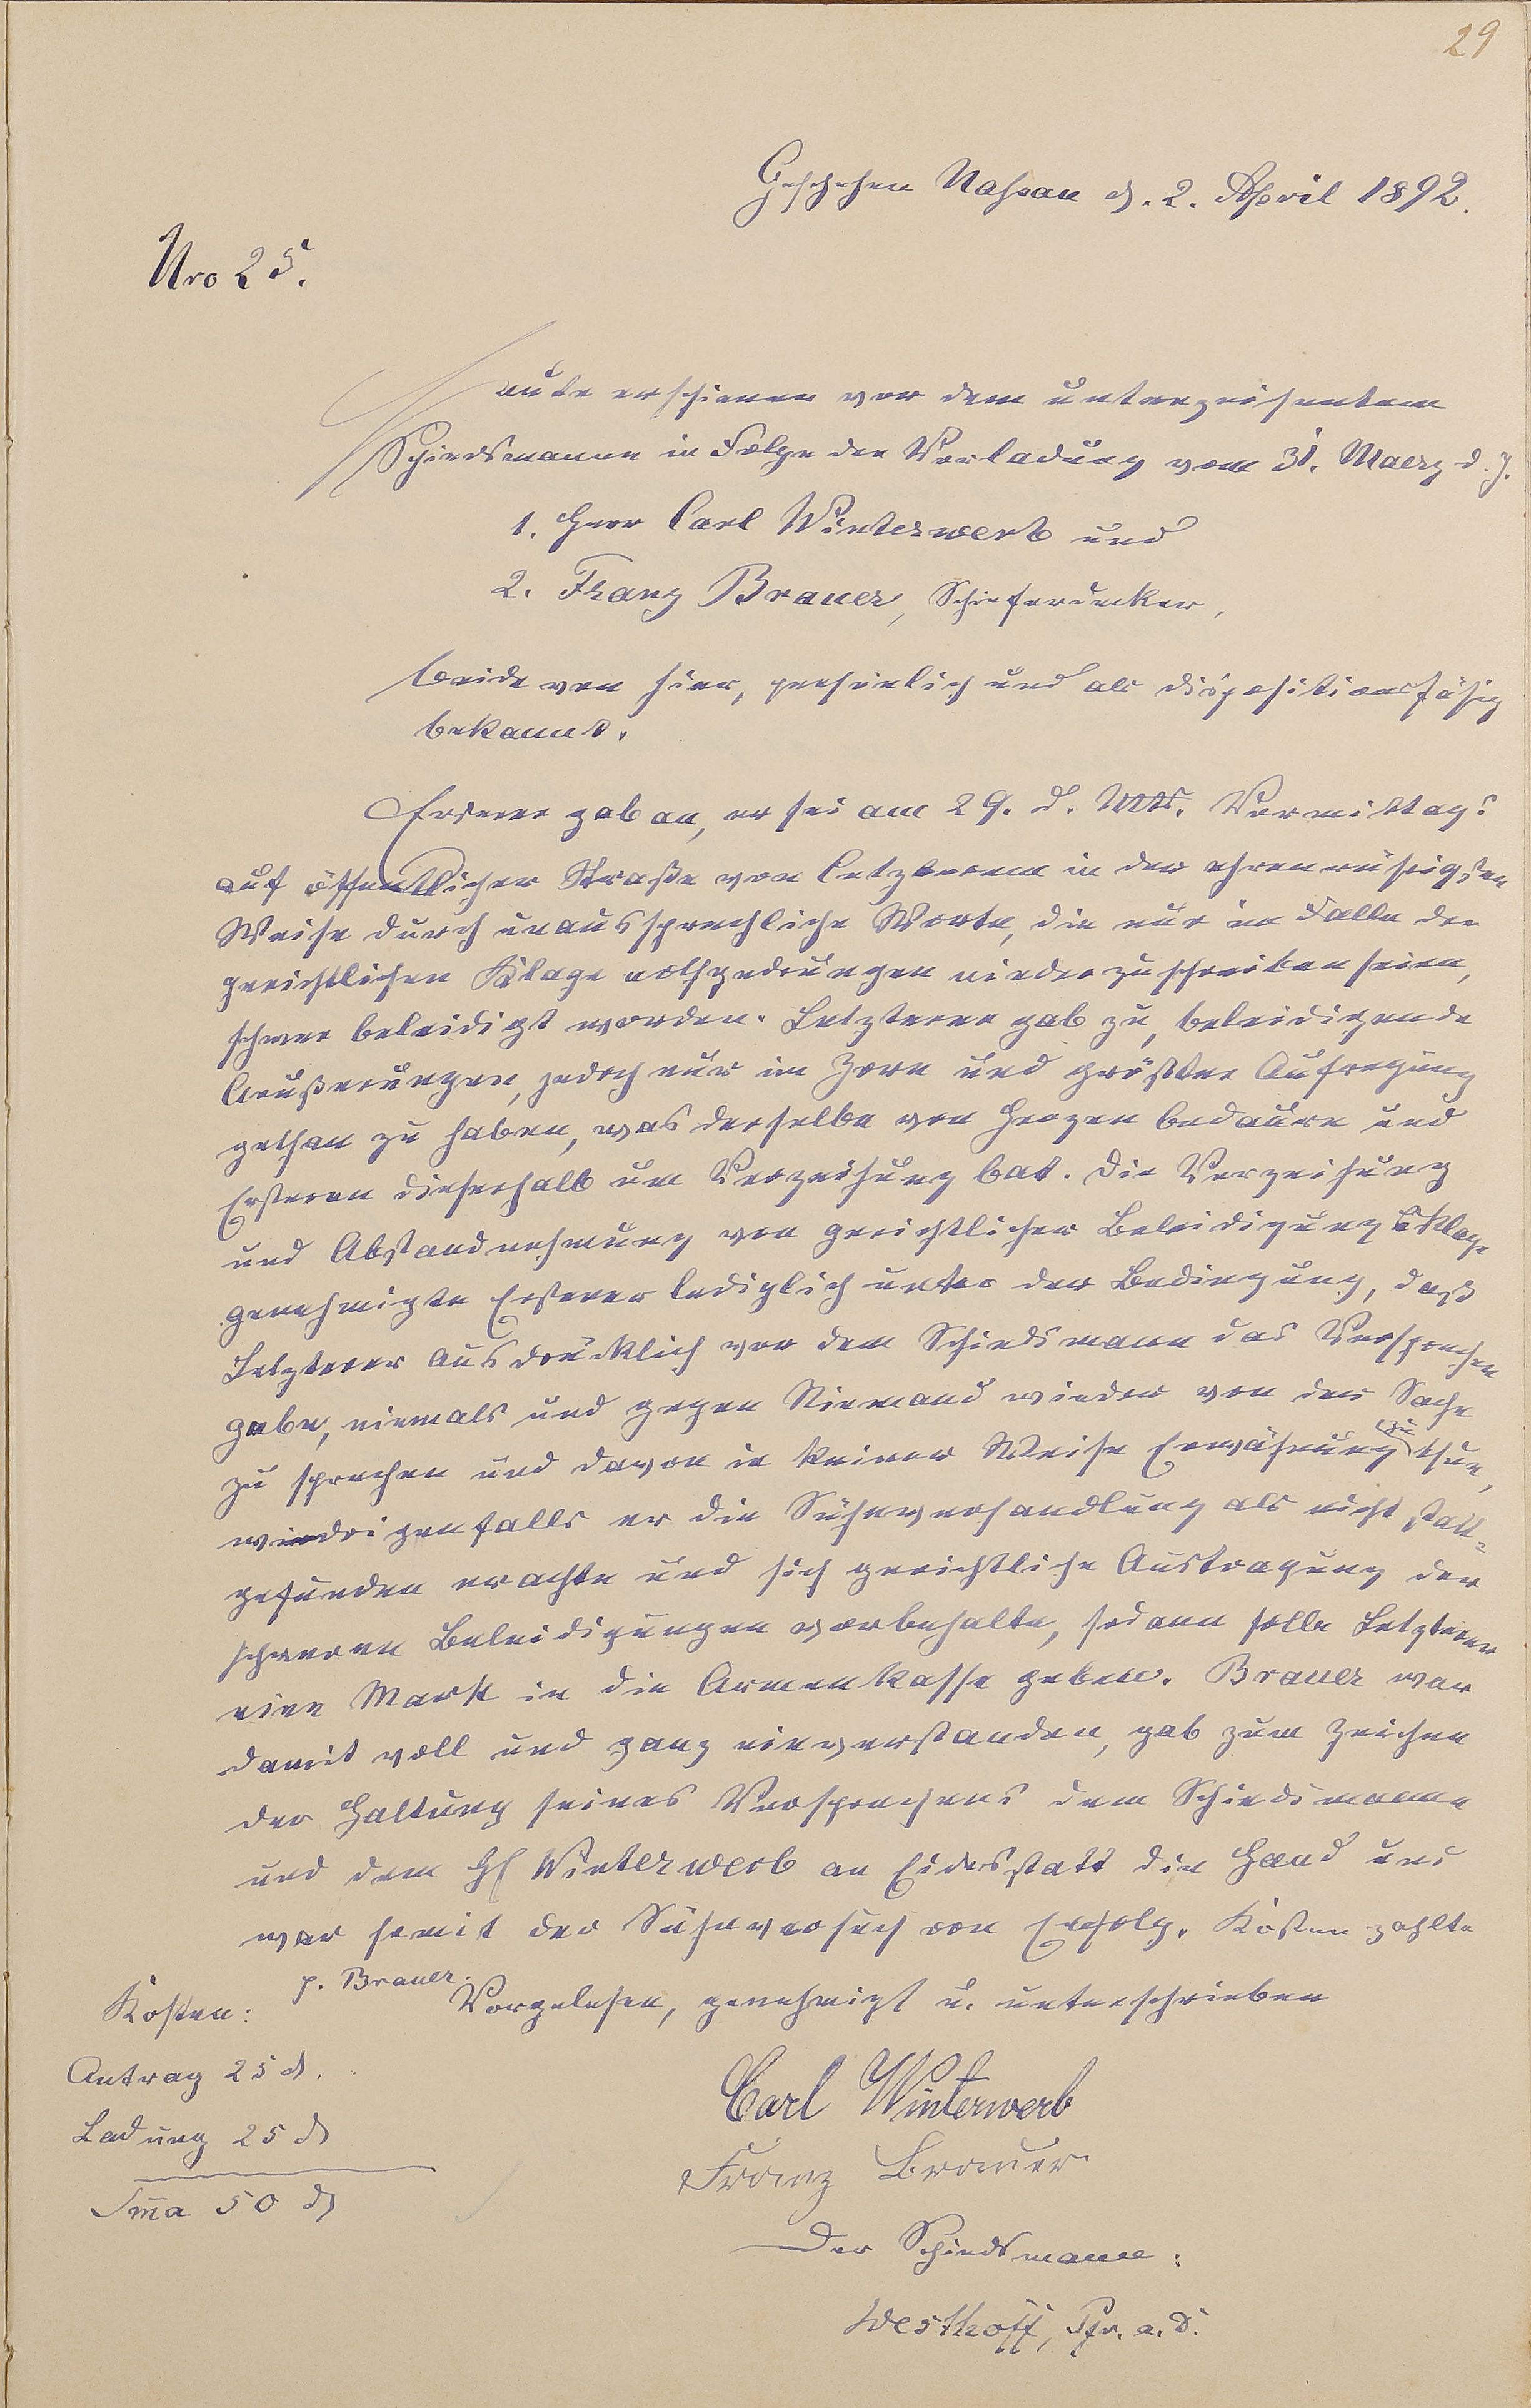 29
Geschehen Nassau d. 2. April 1892.
Nro 25.
Heute erschienen vor dem unterzeichneten
Schiedsmanne in Folge der Vorladung vom 31. Maerz d. J.
1. Herr Carl Winterwerb und
2. Franz Brauer, Schieferdecker,
beide von hier, persönlich und als dispositionsfähig
bekannt.
Ersterer gab an, er sei am 29. d. Mts. Vormittags
auf öffentlicher Straße von Letzterem in der ehrenrührigsten
Weise durch unaussprechliche Worte, die nur im Falle der
gerichtlichen Klage nothgedrungen niederzuschreiben seien,
schwer beleidigt worden. Letzterer gab zu, beleidigende
Aeußerungen, jedoch nur im Zorn und größter Aufregung
gethan zu haben, was derselbe von Herzen bedaure und
Ersteren dieserhalb um Verzeihung bat. Die Verzeihung
und Abstandnehmung von gerichtlicher Beleidigungsklage
genehmigte Ersterer lediglich unter der Bedingung, daß
Letzterer ausdrücklich vor dem Schiedsmanne das Versprechen
gebe, niemals und gegen Niemand wieder von der Sache
zu sprechen und davon in keiner Weise Erwähnung zu thun,
widrigenfalls er die Sühneverhandlung als nicht statt-
gefunden erachte und sich gerichtliche Austragung der
schweren Beleidigungen vorbehalte, sodann solle Letzterer
eine Mark in die Armenkasse geben. Brauer war
damit voll und ganz einverstanden, gab zum Zeichen
der Haltung seines Versprechens dem Schiedsmanne
und dem H Winterwerb an Eidesstatt die Hand und
war somit der Sühneversuch von Erfolg. Kosten zahlte
p. Brauer.
Vorgelesen, genehmigt u. unterschrieben
Kosten:
Antrag 25 d.
Ladung 25 d
Sma 50 d
Carl Winterwerb
Franz Brauer
Der Schiedsmann:
Westhoff, Pfr. a. D.